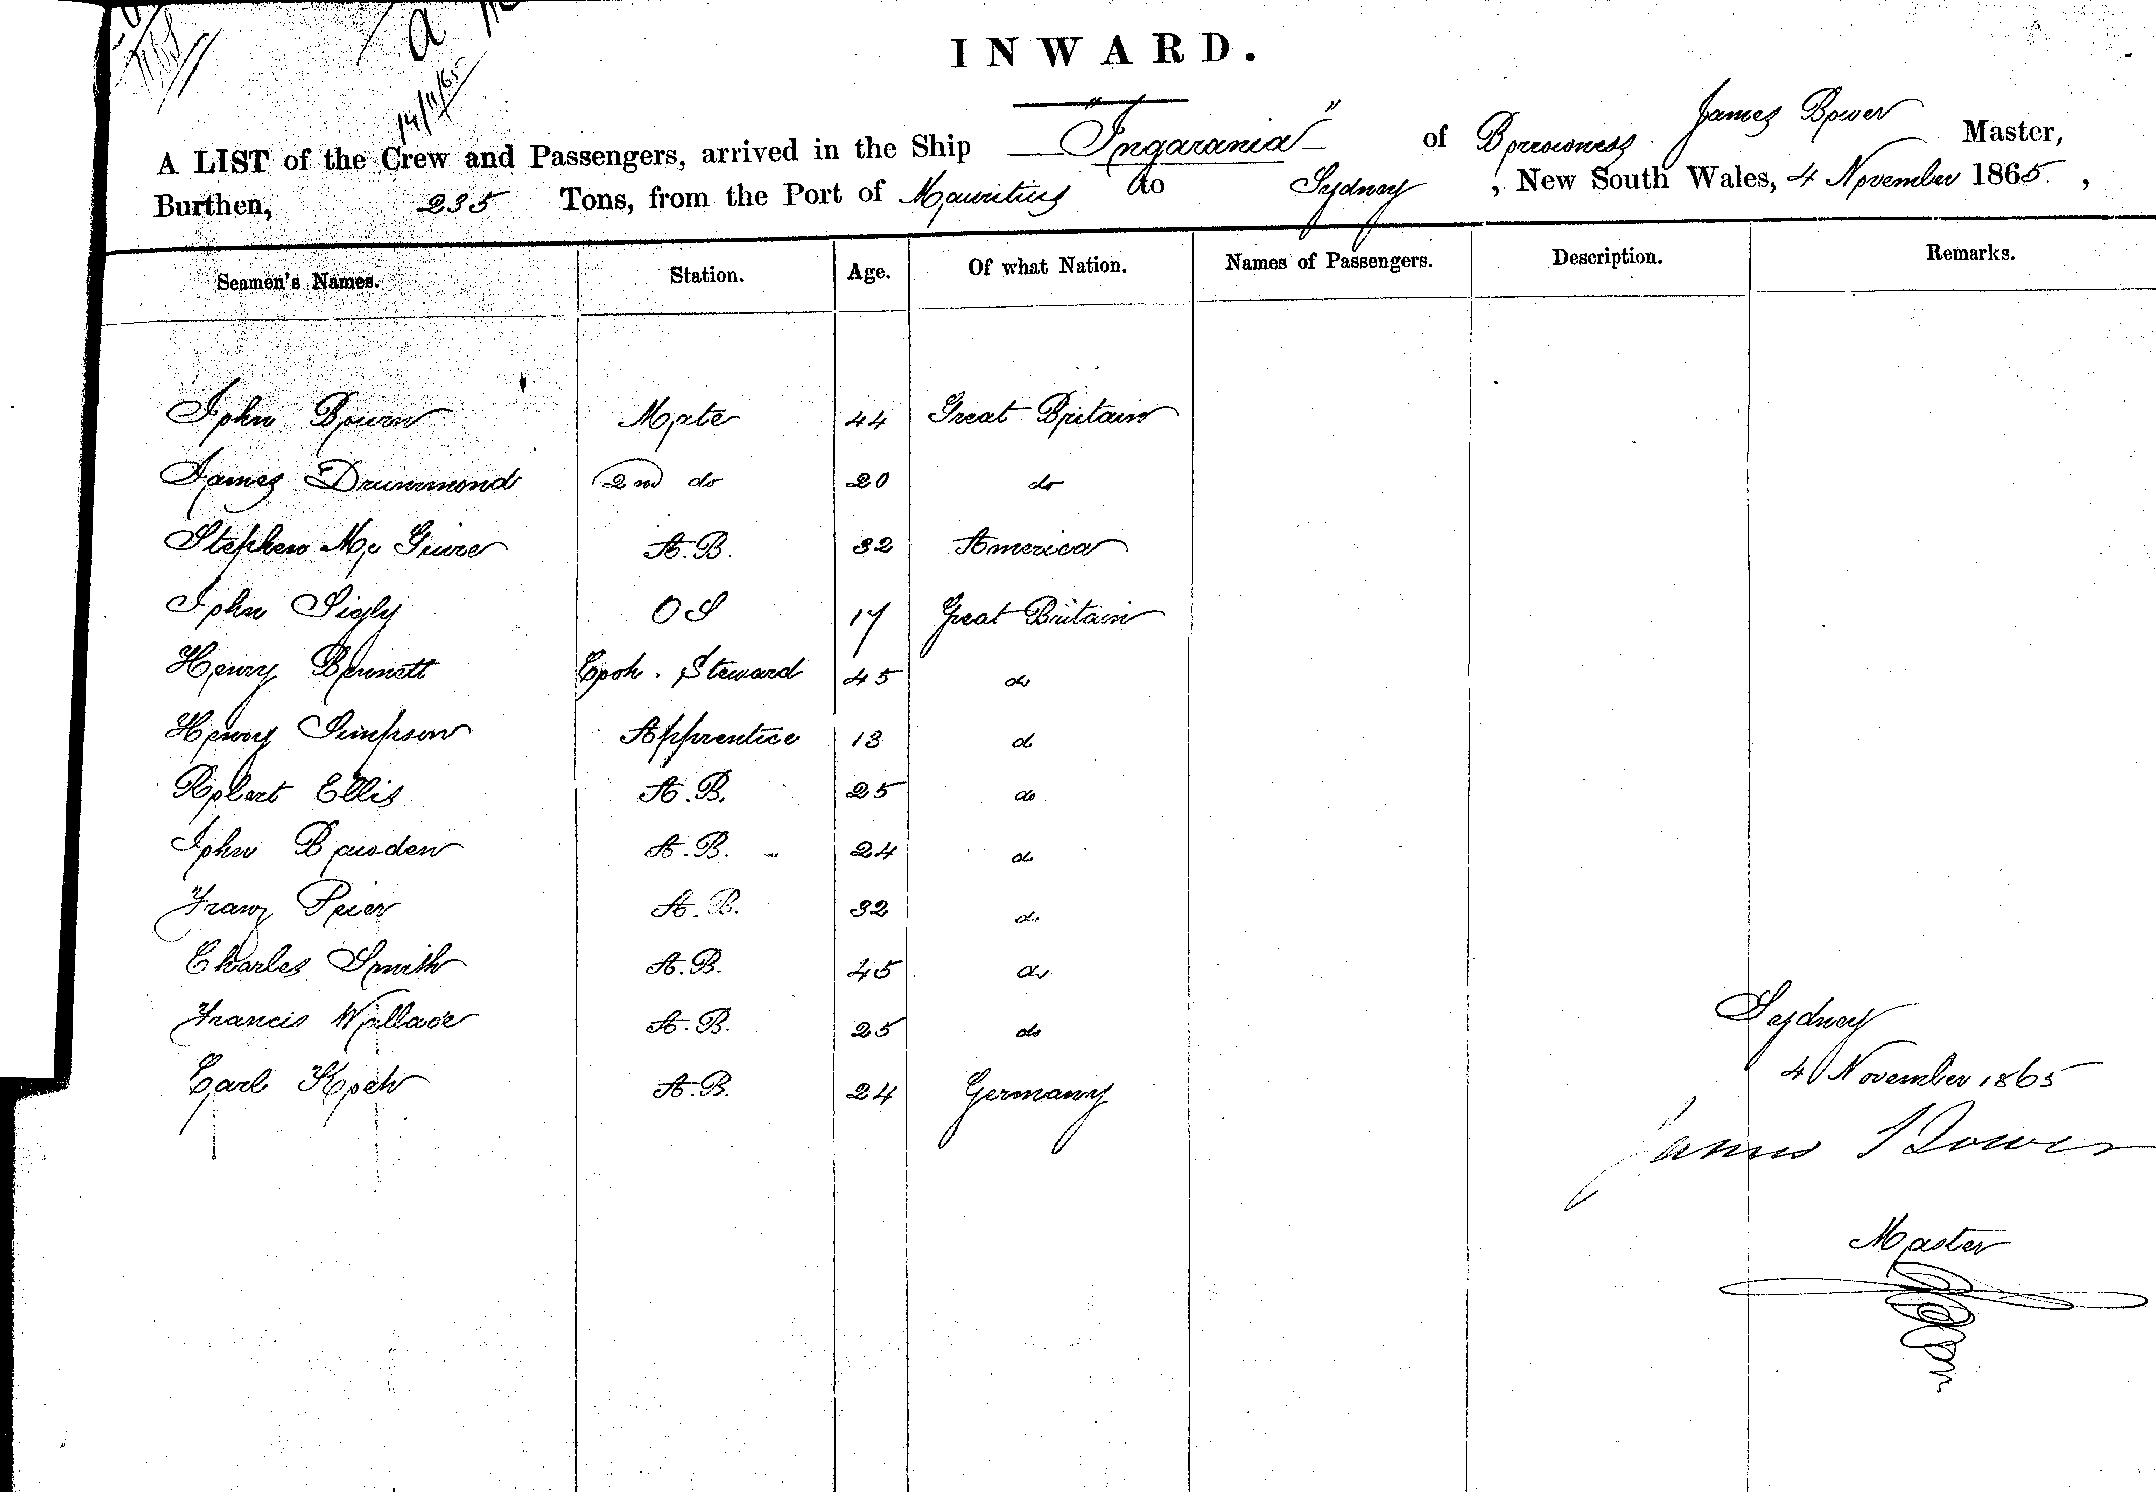 14/11/65
INWARD.
A LIST of the Crew and Passengers, arrived in the Ship "Ingarania" of Borrowness James Bower Master,
Burthen, 235 Tons, from the Port of Mauritius to Sydney, New South Wales, 4 November 1865,
Seamen's Names. Station. Age. Of what Nation. Names of Passengers. Description. Remarks.
John Bourn Mate 44 Great Britain
James Drummond 2nd do 20 do
Stephen Mc Guire A.B. 32 America
John Sigly O S 17 Great Britain
Henry Bennett Cook. Steward 45 do
Henry Simpson Apprentice 13 do
Robert Ellis A.B. 25 do
John Bausden A.B. 24 do
Franz Peier A.B. 32 do
Charles Smith A.B. 45 do
Francis Wallace A.B. 25 do
Carl Koch A.B. 24 Germany
Sydney
4 November 1865
James Bower
Master